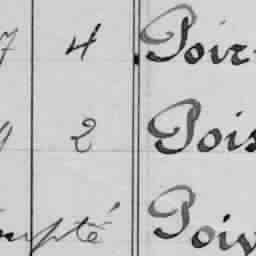 7 4 Poir
2 Pois
mpté Poiv